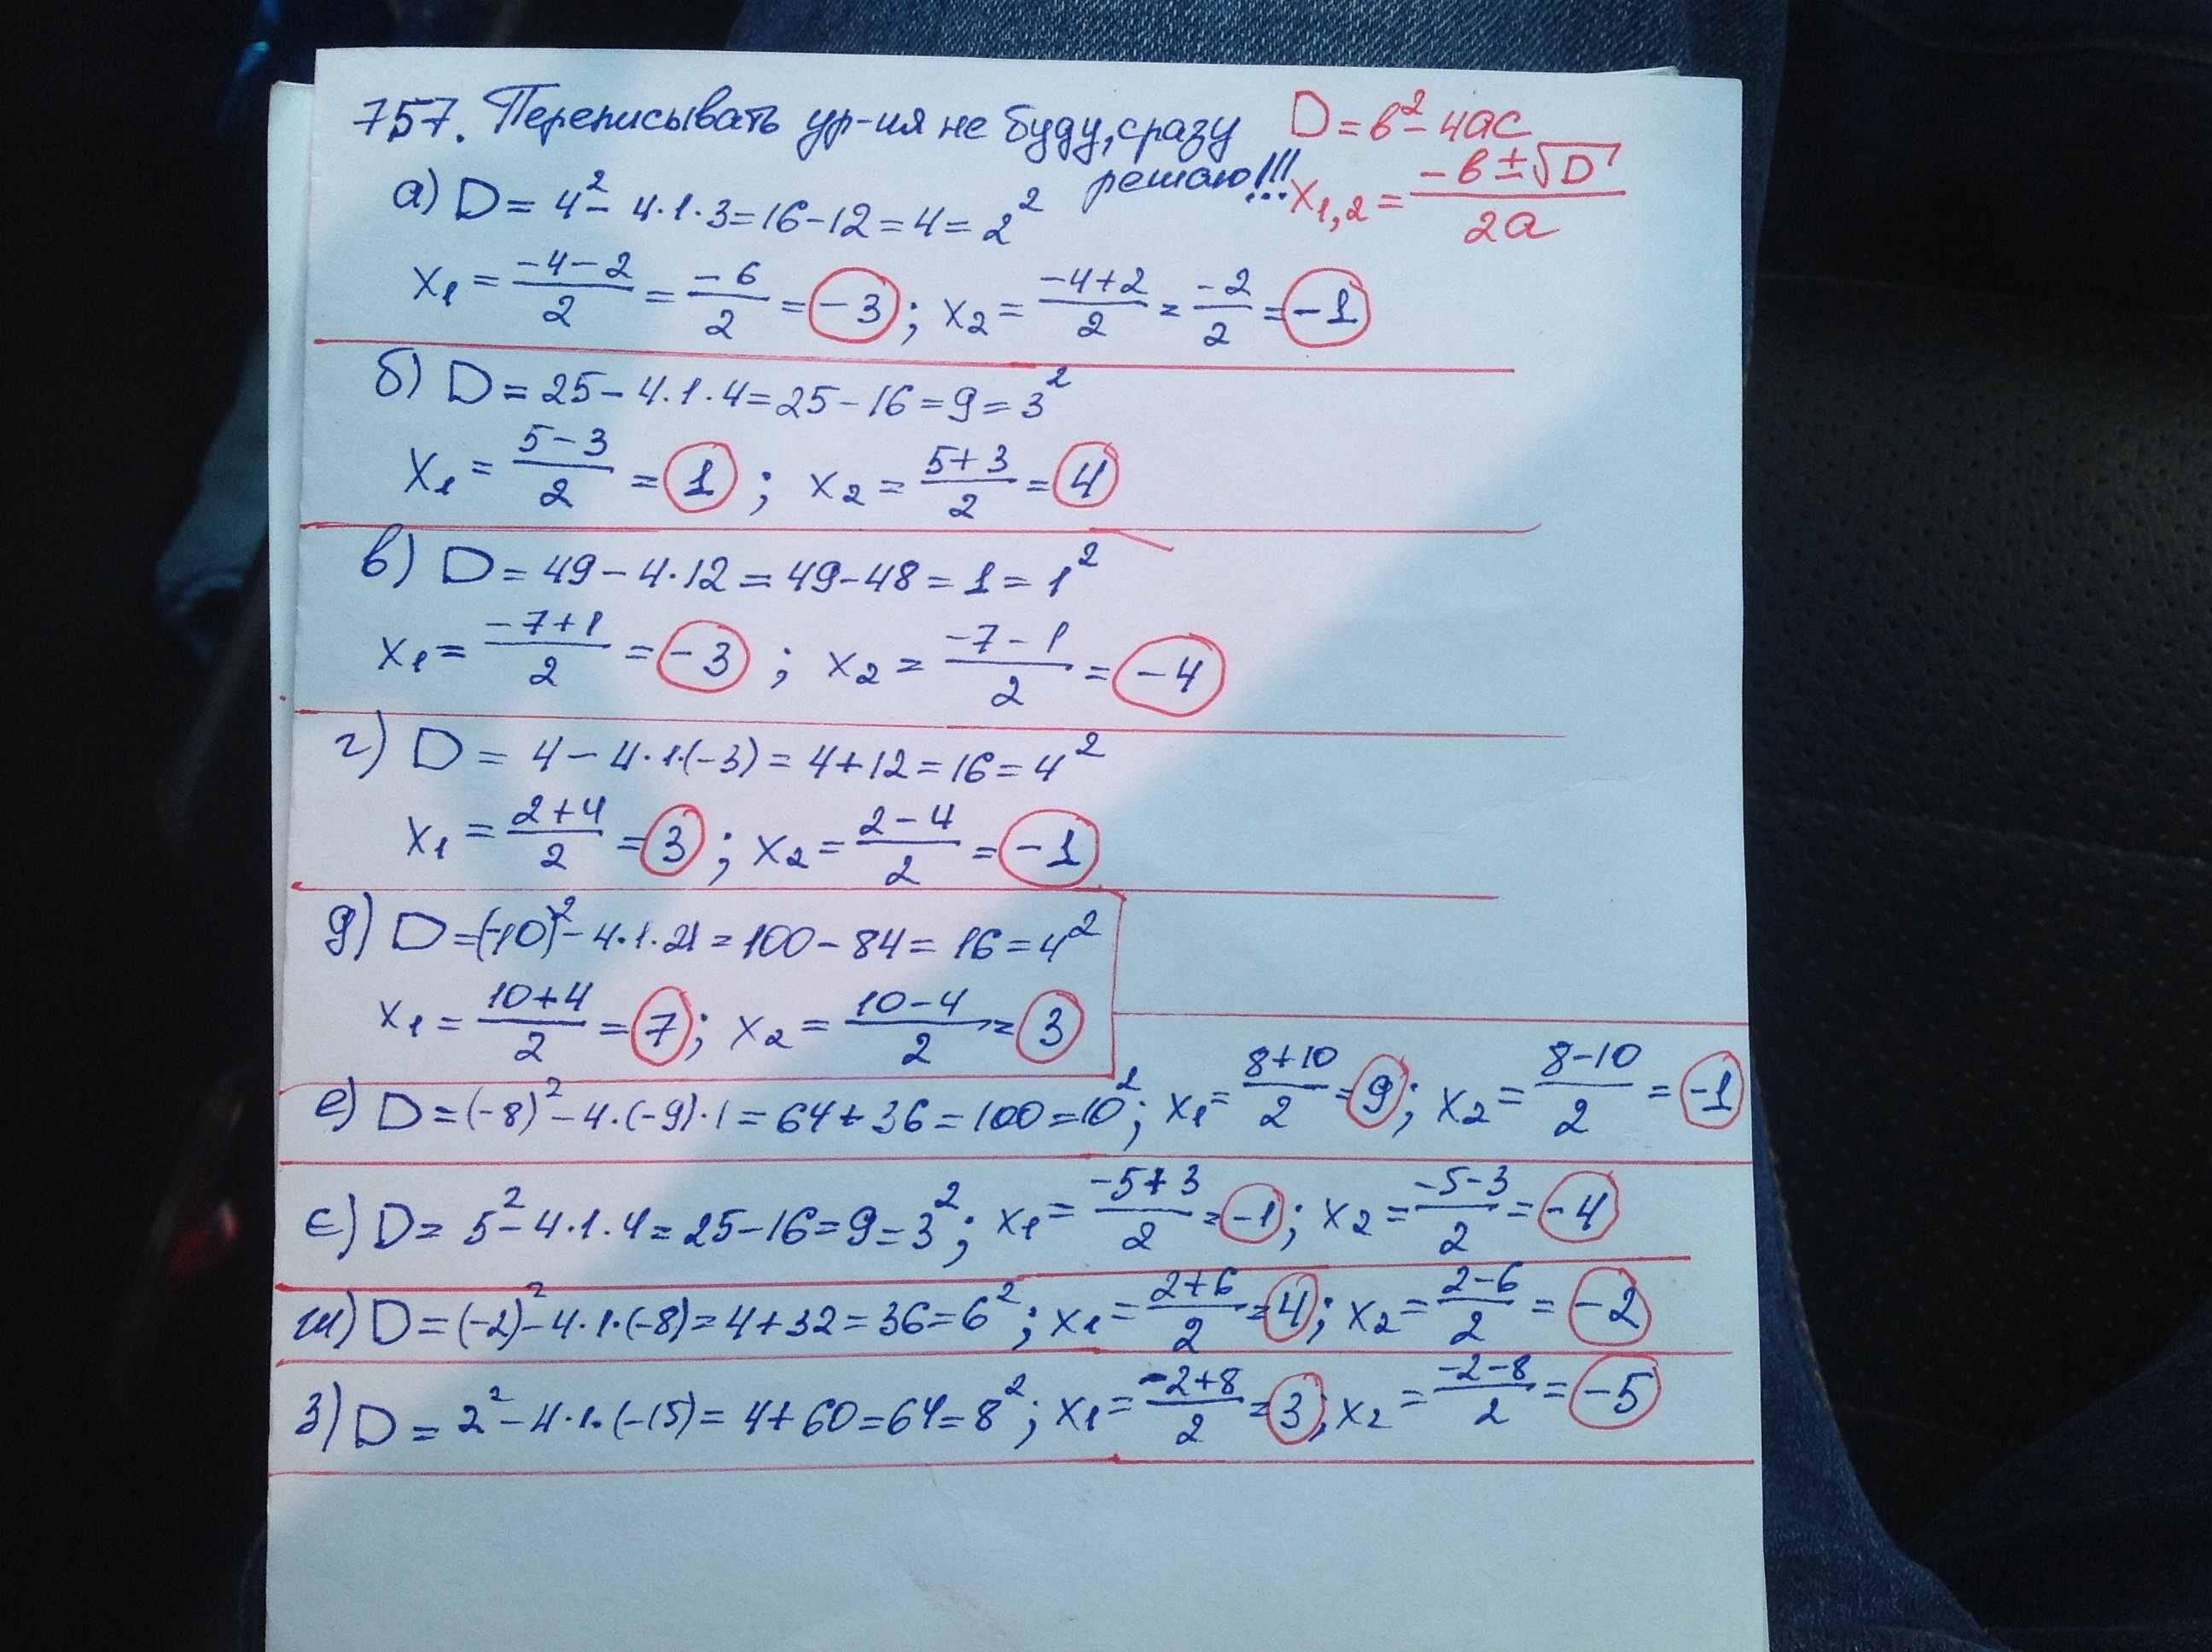 757. Переписывать ур-ия не буду, сразу решаю!!!
D = в² - 4ас
x₁,₂ = (-в ± √D) / 2а
а) D = 4² - 4·1·3 = 16 - 12 = 4 = 2²
x₁ = (-4-2)/2 = -6/2 = -3 ; x₂ = (-4+2)/2 = -2/2 = -1
б) D = 25 - 4·1·4 = 25 - 16 = 9 = 3²
x₁ = (5-3)/2 = 1 ; x₂ = (5+3)/2 = 4
в) D = 49 - 4·12 = 49 - 48 = 1 = 1²
x₁ = (-7+1)/2 = -3 ; x₂ = (-7-1)/2 = -4
г) D = 4 - 4·1·(-3) = 4 + 12 = 16 = 4²
x₁ = (2+4)/2 = 3 ; x₂ = (2-4)/2 = -1
д) D = (-10)² - 4·1·21 = 100 - 84 = 16 = 4²
x₁ = (10+4)/2 = 7 ; x₂ = (10-4)/2 = 3
е) D = (-8)² - 4·(-9)·1 = 64 + 36 = 100 = 10² ; x₁ = (8+10)/2 = 9 ; x₂ = (8-10)/2 = -1
є) D = 5² - 4·1·4 = 25 - 16 = 9 = 3² ; x₁ = (-5+3)/2 = -1 ; x₂ = (-5-3)/2 = -4
ж) D = (-2)² - 4·1·(-8) = 4 + 32 = 36 = 6² ; x₁ = (2+6)/2 = 4 ; x₂ = (2-6)/2 = -2
з) D = 2² - 4·1·(-15) = 4 + 60 = 64 = 8² ; x₁ = (-2+8)/2 = 3 ; x₂ = (-2-8)/2 = -5